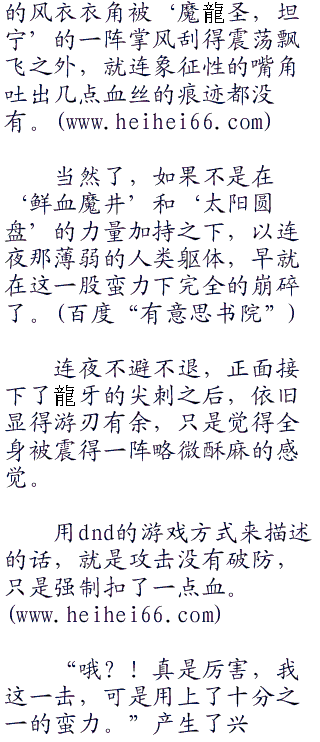 的风衣衣角被‘魔龍圣，坦
宁’的一阵掌风刮得震荡飘
飞之外，就连象征性的嘴角
吐出几点血丝的痕迹都没
有。(www.heihei66.com)
当然了，如果不是在
‘鲜血魔井’和‘太阳圆
盘’的力量加持之下，以连
夜那薄弱的人类躯体，早就
在这一股蛮力下完全的崩碎
了。(百度“有意思书院”)
连夜不避不退，正面接
下了龍牙的尖刺之后，依旧
显得游刃有余，只是觉得全
身被震得一阵略微酥麻的感
觉。
用dnd的游戏方式来描述
的话，就是攻击没有破防，
只是强制扣了一点血。
(www.heihei66.com)
“哦？！真是厉害，我
这一击，可是用上了十分之
一的蛮力。”产生了兴